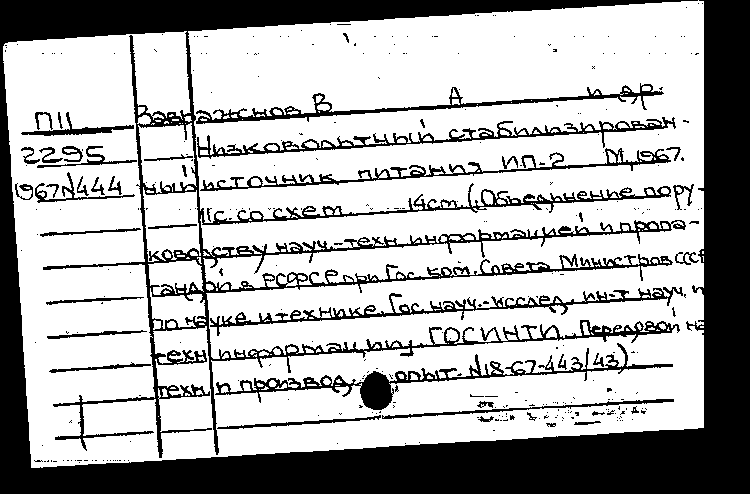 П11 Завражнов, В А и др.
2295 Низковольтный стабилизирован-
1967№444 ный источник питания ИП-2 М, 1967.
11с. со схем. 14см (Объединение по ру-
ководству науч.-техн. информацией и пропа-
гандой в РСФСР при Гос. ком. Совета Министров СССР
по науке и технике. Гос. науч.-исслед. ин-т науч. и
техн. информации. ГОСИНТИ. Передовой на
техн. и производ. опыт. №18-67-443/43)